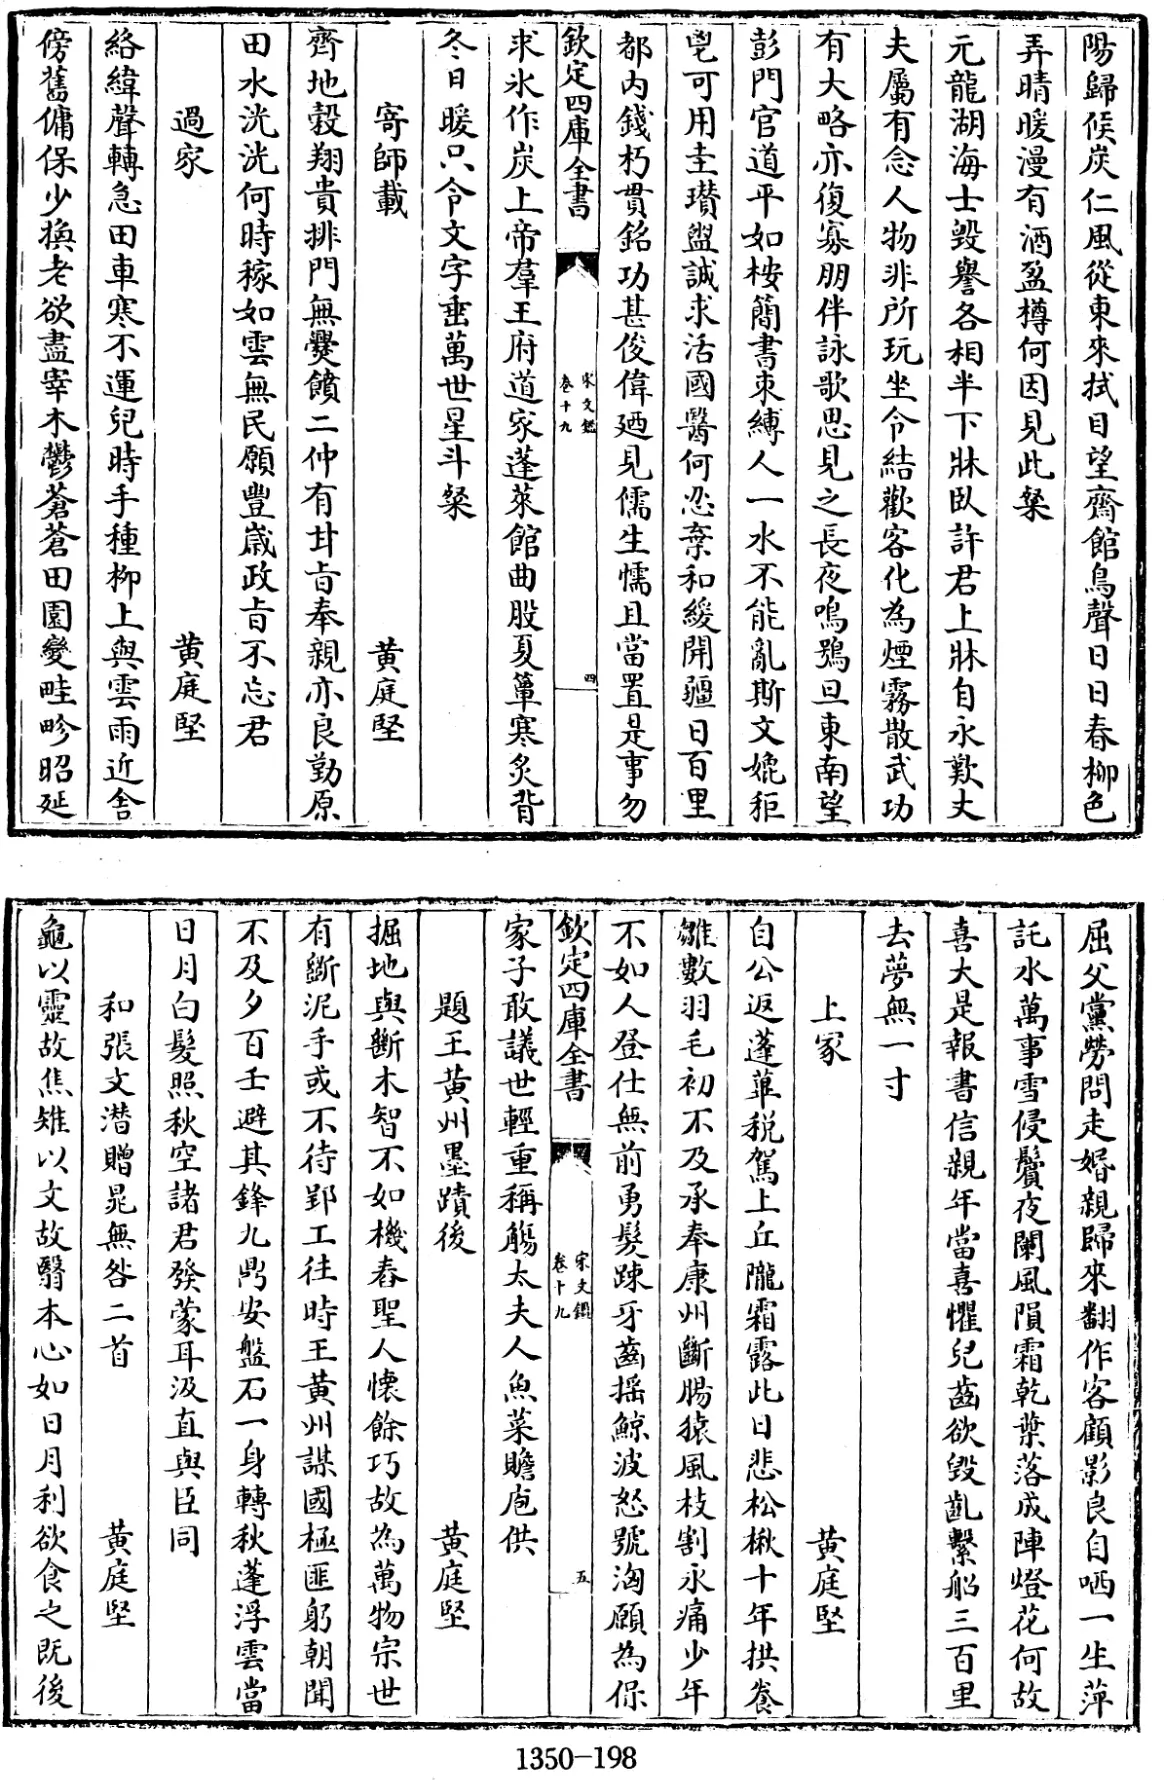 陽歸候炭仁風從東來拭目望齋館鳥聲日日春柳色
弄晴暖漫有酒盈樽何因見此粲
元龍湖海士毀譽各相半下牀臥許君上牀自永歎丈
夫屬有念人物非所玩坐令結歡客化為煙霧散武功
有大略亦復寡朋伴詠歌思見之長夜鳴鶡旦東南望
彭門官道平如桉簡書束縛人一水不能亂斯文媲秬
鬯可用圭瓚盥誠求活國醫何忍棄和緩開疆日百里
都內錢朽貫銘功甚俊偉廼見儒生懦且當置是事勿
欽定四庫全書
宋文鑑
卷十九
四
求冰作炭上帝羣玉府道家蓬萊館曲股夏簟寒炙背
冬日暖只令文字垂萬世星斗粲
寄師載 黃庭堅
齊地穀翔貴排門無爨饋二仲有甘旨奉親亦良勤原
田水洸洸何時稼如雲無民願豐歲政旨不忘君
過家 黃庭堅
絡緯聲轉急田車寒不運兒時手種柳上與雲雨近舍
傍舊傭保少換老欲盡宰木鬱蒼蒼田園變畦畛昭延
屈父黨勞問走婚親歸來翻作客顧影良自哂一生萍
託水萬事雪侵鬢夜闌風隕霜乾葉落成陣燈花何故
喜大是報書信親年當喜懼兒齒欲毀齔繫船三百里
去夢無一寸
上冢 黃庭堅
自公返蓬蓽稅駕上丘隴霜露此日悲松楸十年拱養
雛數羽毛初不及承奉康州斷腸猿風枝割永痛少年
不如人登仕無前勇髮踈牙齒搖鯨波怒號洶願為保
欽定四庫全書
宋文鑑
卷十九
五
家子敢議世輕重稱觴太夫人魚菜贍庖供
題王黃州墨蹟後 黃庭堅
掘地與斷木智不如機舂聖人懷餘巧故為萬物宗世
有斷泥手或不待郢工往時王黃州謀國極匪躬朝聞
不及夕百壬避其鋒九鼎安盤石一身轉秋蓬浮雲當
日月白髮照秋空諸君發蒙耳汲直與臣同
和張文潜贈晁無咎二首 黃庭堅
龜以靈故焦雉以文故翳本心如日月利欲食之既後
1350-198